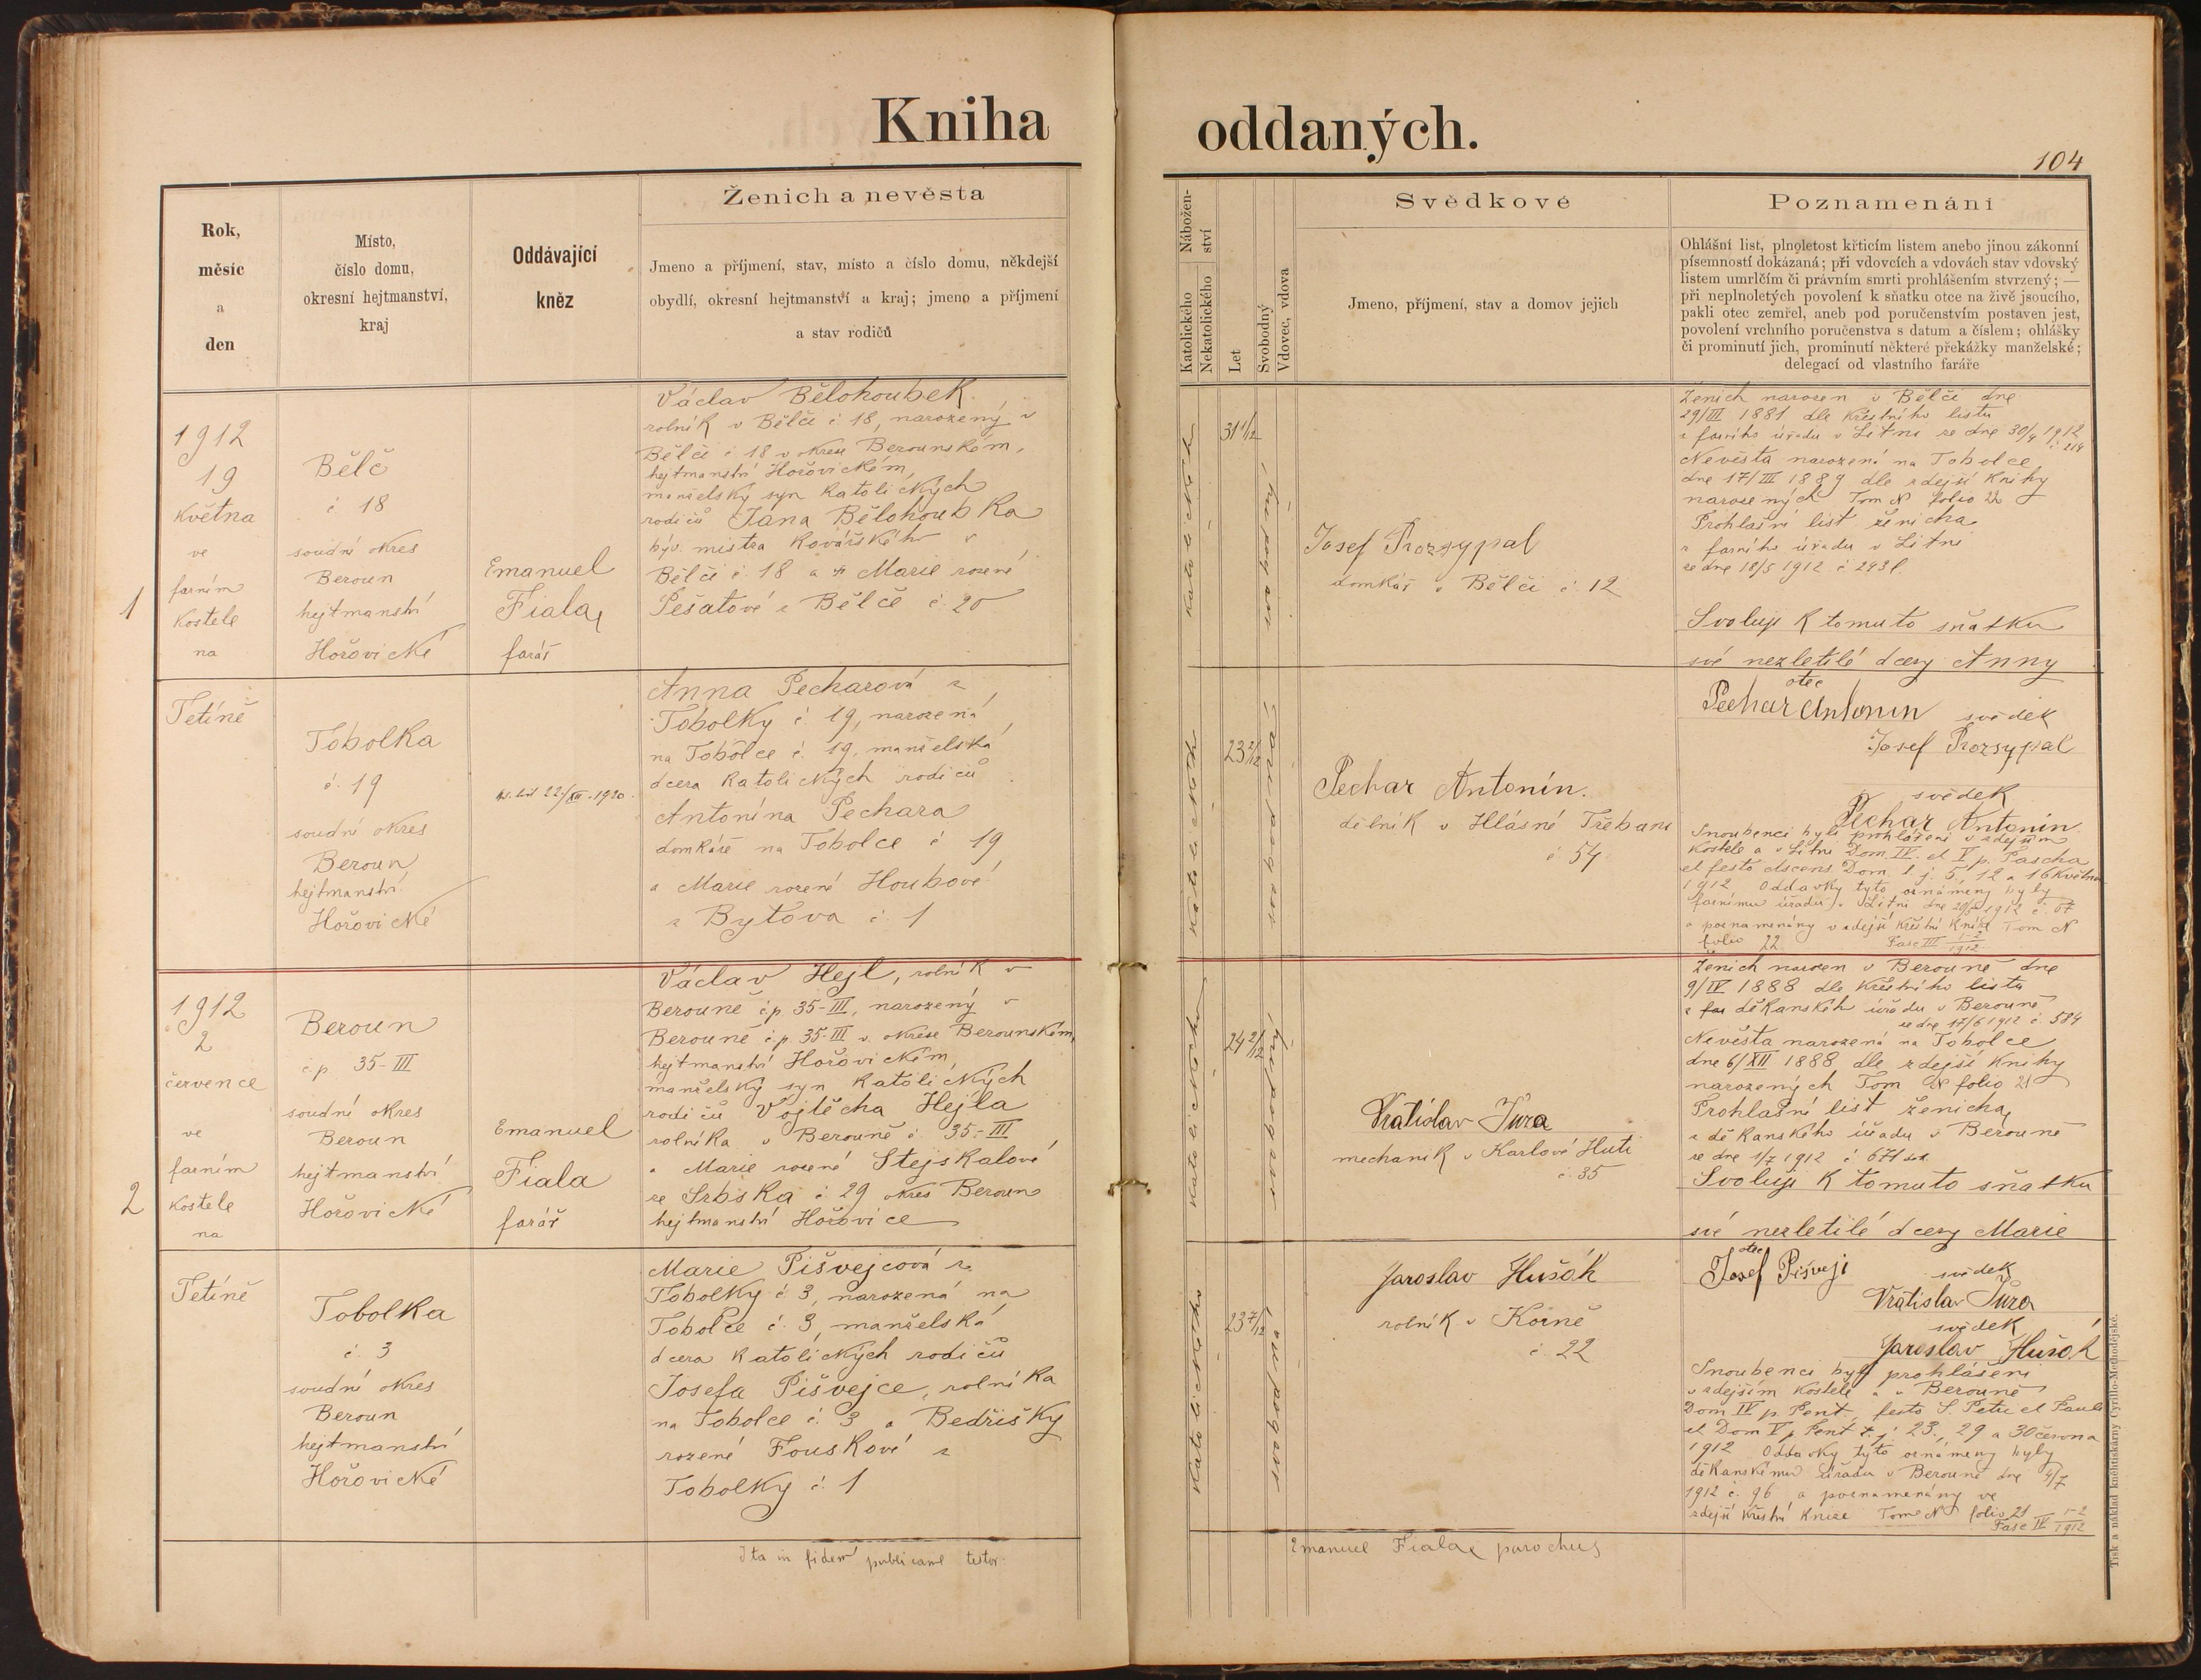 Kniha oddaných.
104
Rok,
měsíc
a
den
Místo,
číslo domu,
okresní hejtmanství,
kraj
Oddávající
kněz
Ženich a nevěsta
Jmeno a příjmení, stav, místo a číslo domu, někdejší
obydlí, okresní hejtmanství a kraj; jmeno a příjmení
a stav rodičů
Nábožen-
ství
Katolického
Nekatolického
Let
Svobodný
Vdovec, vdova
Svědkové
Jmeno, příjmení, stav a domov jejich
Poznamenání
Ohlášní list, plnoletost křticím listem anebo jinou zákonní
písemností dokázaná; při vdovcích a vdovách stav vdovský
listem umrlčím či právním smrti prohlášením stvrzený; —
při neplnoletých povolení k sňatku otce na živě jsoucího,
pakli otec zemřel, aneb pod poručenstvím postaven jest,
povolení vrchního poručenstva s datum a číslem; ohlášky
či prominutí jich, prominutí některé překážky manželské;
delegací od vlastního faráře
1
1912
19
Května
ve
farním
Kostele
na
Tetíně
Běleč
č 18
soudní okres
Beroun
hejtmanství
Hořovické
Emanuel
Fiala,
farář
Václav Bělohoubek
rolník v Bělči č 18, narozený v
Bělči č 18 v okrese Berounském,
hejtmanství Hořovickém,
manželský syn Katolických
rodičů Jana Bělohoubka
býv. mistra Kovářského v
Bělči č. 18 a Marie rozené
Pešatové z Bělče č. 20
Katolického
31 1/12
svobodný
Josef Prozsypal
domkář v Bělči č 12
Ženich narozen v Bělči dne
29/III 1881 dle Křestního listu
z farního úřadu v Litni ze dne 30/4 1912
č. 214
Nevěsta narozená na Tobolce
dne 17/III 1889 dle zdejší Knihy
narozených Tom N folio 22
Prohlašní list ženicha
z farního úřadu v Litni
ze dne 18/5 1912 č 243
Svoluji K tomuto sňatku
své nezletilé dcery Anny
otec
Pechar Antonín
svědek
Josef Prozsypal
svědek
Pechar Antonín
Tobolka
č. 19
soudní okres
Beroun
hejtmanství
Hořovické
22/XII. 1920.
Anna Pecharová z
Tobolky č. 19, narozená
na Tobolce č. 19, manželská
dcera Katolických rodičů
Antonína Pechara
domkáře na Tobolce č 19
a Marie rozené Houbové
z Bytova č. 1
Katolického
23 2/12
svobodná
Pechar Antonín.
dělník v Hlásné Třebani
č 54
Snoubenci byli prohlášeni v zdejším
Kostele a v Litni Dom IV. et V p. Pascha
et festo Ascens Dom. t. j. 5., 12 a 16 Května
1912 Oddavky tyto oznámeny byly
farnímu úřadu v Litni dne 20/5 1912 č 67
a poznamenány v zdejší Křestní Knize Tom N
folio 22 Fasc III 1-2/1912
2
1912
2
července
ve
farním
Kostele
na
Tetíně
Beroun
č.p. 35-III
soudní okres
Beroun
hejtmanství
Hořovické
Emanuel
Fiala
farář
Václav Hejl, rolník v
Berouně čp. 35-III, narozený v
Berouně čp. 35-III v okrese Berounském,
hejtmanství Hořovickém,
manželský syn Katolických
rodičů Vojtěcha Hejla
rolníka v Berouně č. 35-III
a Marie rozené Stejskalové
ze Srbska č. 29 okres Beroun
hejtmanství Hořovice
Katolického
24 2/12
svobodný
Vratislav Jůza
mechanik v Karlově Huti
č. 35
Ženich narozen v Berouně dne
9/IV 1888 dle Křestního listu
z děkanského úřadu v Berouně
ze dne 17/6 1912 č. 584
Nevěsta narozená na Tobolce
dne 6/XII 1888 dle zdejší Knihy
narozených Tom N folio 21
Prohlašní list ženicha
z děkanského úřadu v Berouně
ze dne 1/7 1912 č 671
Svoluji K tomuto sňatku
své nezletilé dcery Marie
otec
Josef Pišvejc
svědek
Vratislav Jůza
svědek
Jaroslav Hušák
Tobolka
č. 3
soudní okres
Beroun
hejtmanství
Hořovické
Marie Pišvejcová z
Tobolky č 3, narozená na
Tobolce č. 3, manželská
dcera Katolických rodičů
Josefa Pišvejce, rolníka
na Tobolce č. 3 a Bedřišky
rozené Fouskové z
Tobolky č. 1
Katolického
23 7/12
svobodná
Jaroslav Hušák
rolník v Korně
č. 22
Snoubenci byli prohlášeni
v zdejším Kostele a v Berouně
Dom IV p. Pent, festo S. Petri et Pauli
et Dom V p Pent t. j. 23., 29 a 30 června
1912 Oddavky tyto oznámeny byly
děkanskému úřadu v Berouně dne 4/7
1912 č. 96 a poznamenány ve
zdejší Křestní Knize Tom N folio 21
Fasc IV 1-2/1912
Ita in fidem publicam testor:
Emanuel Fiala, parochus
Tisk a náklad kněhtiskárny Cyrillo-Methodějské.